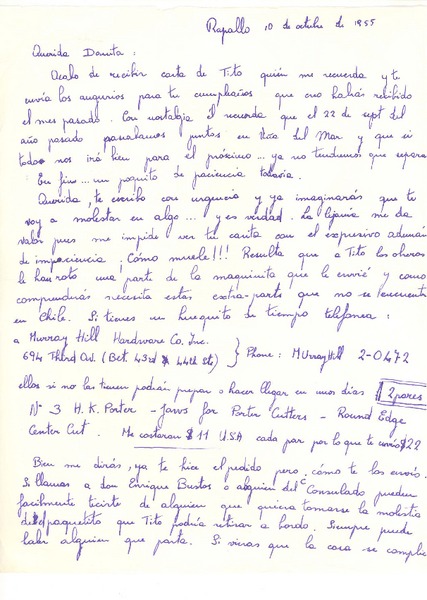 Rapallo 10 de octubre de 1955
Querida Donita :
Acabo de recibir carta de Tito quién me recuerda y te
envía los augurios para tu cumpleaños que creo habrás recibido
el mes pasado. Con nostalgia él recuerda que el 22 de sept del
año pasado paseabamos juntos en Viña del Mar y que si
todo nos irá bien para el próximo... ya no tendremos que separar
En fin... un poquito de paciencia todavia.
Querida, te escribo con urgencia y ya imaginarás que te
voy a molestar en algo... y es verdad. La lejanía me da
valor pues me impide ver tu carita con el expresivo ademán
de impaciencia ¡Cómo muele!!! Resulta que a Tito los obreros
le han roto una parte de la maquinita que le envié y como
comprenderás necesita estas extra-parts que no se encuentra
en Chile. Si tienes un huequito de tiempo telefonea :
a Murray Hill Hardware Co. Inc.
694 Third Av. (Bet. 43rd & 44th St.) } Phone : MUrrayHill 2-0472
ellos si no las tienen podrán preparar o hacer llegar en unos días 2 pares
Nº 3 H.K. Porter - Jaws for Porter Cutters - Round Edge
Center Cut. Me costaron $11 USA cada par por lo que te envío $22
Bien me dirás, ya te hice el pedido pero cómo te los envío.
Si llamas a don Enrique Bustos o alguien del Consulado pueden
facilmente decirte de alguien que quiera tomarse la molestia
del paquetito que Tito podría retirar a bordo. Siempre puede
haber alguien que parta. Si vieras que la cosa se complica